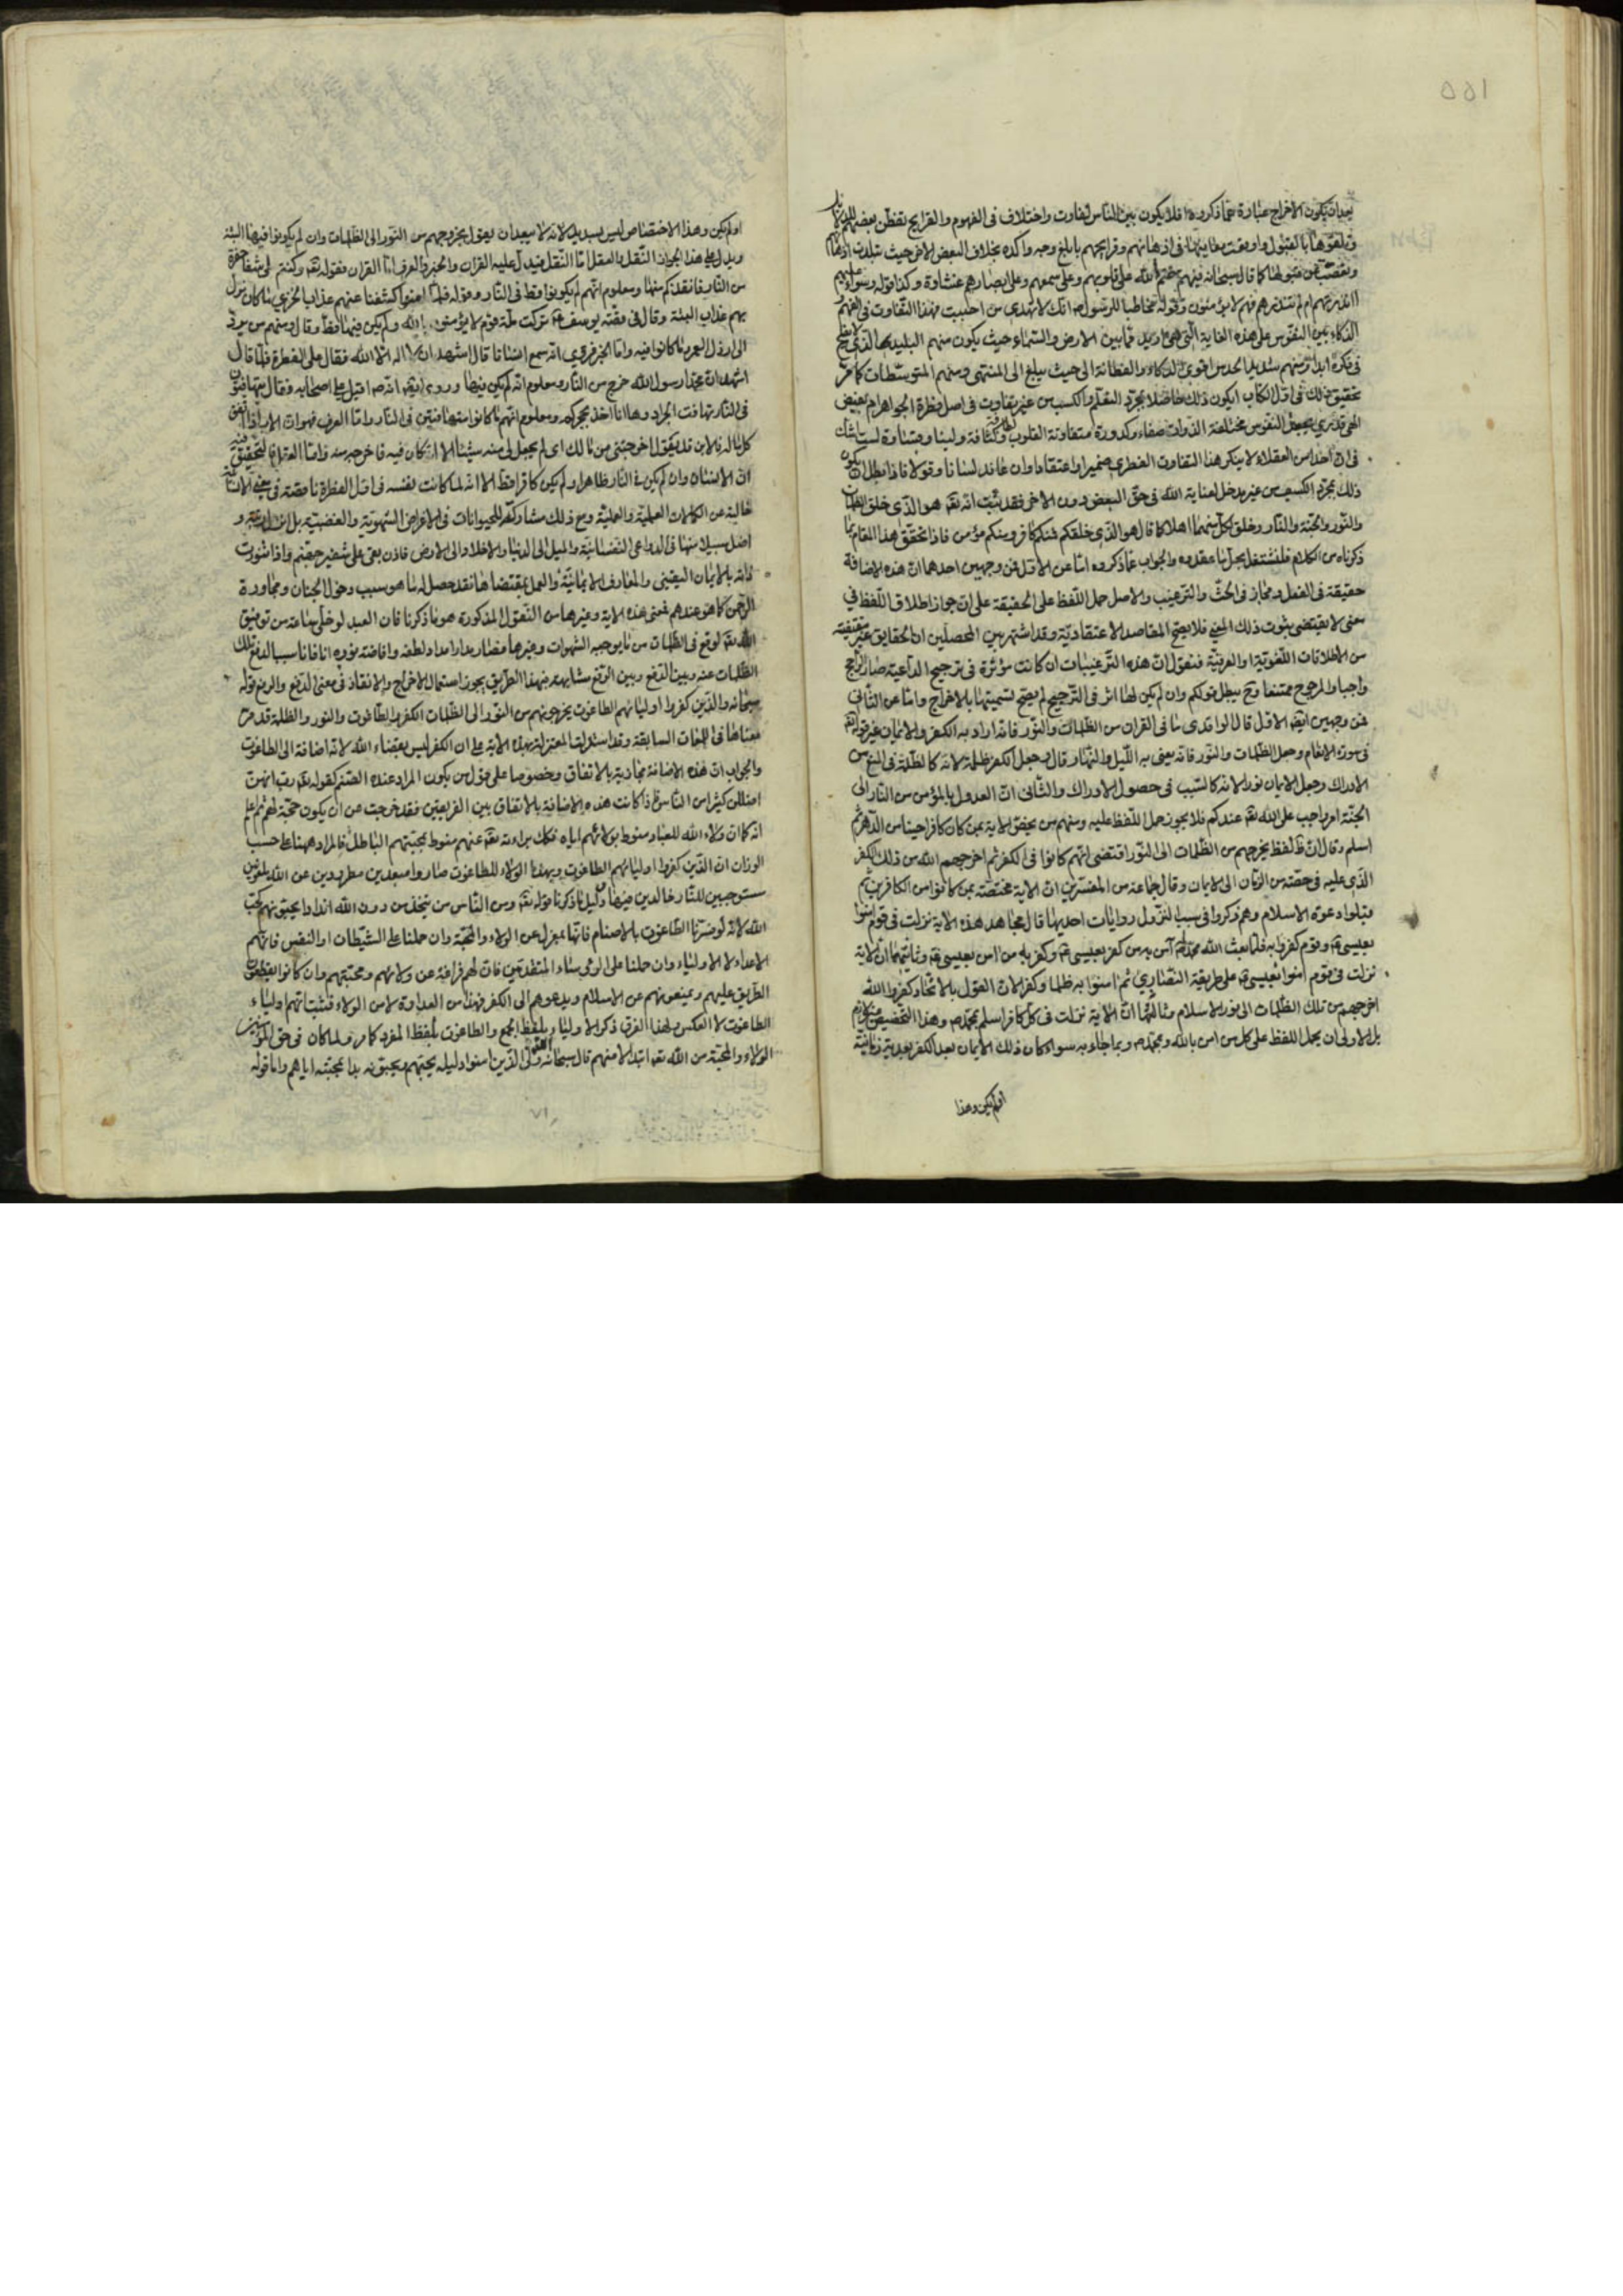 ١٥٥
بعد ان يكون الاخراج عبارة عما ذكروه افلا يكون بين الناس تفاوت واختلاف في الفهوم والقرايح تفطن بعضهم للدلايل
وتلقوها بالقبول واوقعت معاينها في اذهانهم وقرايحهم بابلغ وجه واكده بخلاف البعض الاخر حيث تبلدت اذهانها
وتعصبت عن قبولها كما قال سبحانه فيهم ختم الله على قلوبهم وعلى سمعهم وعلى ابصارهم غشاوة وكذا قوله وسواء عليهم
ءانذرتهم ام لم تنذرهم فهم لا يؤمنون وقوله مخاطبا للرسول ص انك لا تهدى من احببت فهذا التفاوت في الفهم و
الذكاء بين النفوس على هذه الغاية التي هي ازيد مما بين الارض والسماء حيث يكون منهم البليد الذي لا يفلح
في فكره ابدا ومنهم شديد الحدس القوى الذكاء والفطانة الى حيث يبلغ الى المنتهى ومنهم المتوسطات كما مر
تحقيق ذلك في اول الكتاب ايكون ذلك حاصلا بمجرد التعلم والكسب من غير تفاوت في اصل فطرة الجواهر ام بفيض
الهى قدرى يجعل النفوس مختلفة الذوات صفاء وكدورة متفاوتة القلوب لطافة وكثافة ولينا وقساوة لست اشك
في ان احدا من العقلاء لا ينكر هذا التفاوت الفطرى ضميرا واعتقادا وان عاند لسانا وقولا فاذا بطل ان يكون
ذلك بمجرد الكسب من غير مدخل لعناية الله في حق البعض دون الاخر فقد ثبت انه تعه هو الذى خلق الظلمات
والنور والجنة والنار وخلق لكل منهما اهلا كما قال هو الذي خلقكم فمنكم كافر ومنكم مؤمن فاذا تحقق هذا المقام بما
ذكرناه من الكلام فلنشتغل بحل ما عقدوه والجواب عما ذكروه اما عن الاول فمن وجهين احدهما ان هذه الاضافة
حقيقة في الفعل ومجاز في الحث والترغيب والاصل حمل اللفظ على الحقيقة على ان جواز اطلاق اللفظ في
معنى لا يقتضى ثبوت ذلك المعنى فلا يصح المقاصد الاعتقادية وقد اشتهر بين المحصلين ان الحقايق غير مقتنصة
من الاطلاقات اللغوية او العرفية فنقول ان هذه الترغيبات ان كانت مؤثرة في ترجيح الداعية صار الراجح
واجبا والمرجوح ممتنعا وح يبطل قولكم وان لم يكن لها اثر في الترجيح لم يصح تسميتها بالاخراج واما عن الثانى
فمن وجهين ايضا الاول قال الواقدى ما في القران من الظلمات والنور فانه اراد به الكفر والايمان غير قوله تعه
في سورة الانعام وجعل الظلمات والنور فانه يعنى به الليل والنهار قال وجعل الكفر ظلمة لانه كالظلمة في المنع من
الادراك وجعل الايمان نورا لانه كالسبب في حصول الادراك والثانى ان العدول بالمؤمن من النار الى
الجنة امر واجب على الله تعه عندكم فلا يجوز حمل اللفظ عليه ومنهم من يخص الاية بمن كان كافرا حينا من الدهر ثم
اسلم وقال ان ظ لفظ يخرجهم من الظلمات الى النور اقتضى انهم كانوا في الكفر ثم اخرجهم الله من ذلك الكفر
الذى عليه في حصة من الزمان الى الايمان وقال جماعة من المفسرين ان الاية مختصة بمن كانوا من الكافرين ثم
قبلوا دعوة الاسلام وهم ذكروا في سبب النزول روايات احديها قال مجاهد هذه الاية نزلت في قوم امنوا
بعيسى ع وقوم كفروا به فلما بعث الله محمدا ص آمن به من كفر بعيسى ع وكفر به من امن بعيسى ع وثانيهما ان الاية
نزلت في قوم امنوا بعيسى ع على طريقة النصارى ثم امنوا به ظلما وكفرا لان القول بالاتحاد كفر والله
اخرجهم من تلك الظلمات الى نور الاسلام وثالثها ان الاية نزلت في كل كافر اسلم بمحمد ص وهذا التخصيص غير لازم
بل الاولى ان يحمل اللفظ على كل من امن بالله وبمحمد ص وبما جاء به سواء كان ذلك الايمان بعد الكفر بعدية زمانية
او لم يكن وهذا
او لم يكن وهذا الاختصاص ليس بسديد لانه لا يبعد ان يقول يخرجهم من النور الى الظلمات وان لم يكونوا فيها البتة
ويدل على هذا الجواز النقل والعقل اما النقل فيدل عليه القران والخبر والعرف اما القران فقوله تعه وكنتم على شفا حفرة
من النار فانقذكم منها ومعلوم انهم لم يكونوا قط في النار وقوله فلما امنوا كشفنا عنهم عذاب الخزى ما كان نزل
بهم عذاب البتة وقال في قصة يوسف ع تركت ملة قوم لا يؤمنون بالله ولم يكن فيها قط وقال ومنهم من يرد
الى ارذل العمر ما كانوا فيه واما الخبر فروى انه سمع انسانا قال اشهد ان لا اله الا الله فقال على الفطرة فلما قال
اشهد ان محمدا رسول الله خرج من النار ومعلوم انه لم يكن فيها وروى ايضا انه ص اقبل على اصحابه فقال تتهافتون
في النار تهافت الجراد وها انا اخذ بحجزكم ومعلوم انهم ما كانوا متهافتين في النار واما العرف فهو ان الاب اذا انفق
كل ماله فالابن قد يقول اخرجتنى من مالك اى لم يجعل لى منه شيئا لا انه كان فيه فاخرج منه واما العقل فالتحقيق فيه
ان الانسان وان لم يكن في النار ظاهرا ولم يكن كافرا قط الا انه لما كانت نفسه في اول الفطرة ناقصة في
خالية عن الكمالات العلمية والعملية ومع ذلك مشاركة للحيوانات في الاغراض الشهوية والغضبية بل و
اضل سبيلا منها في الدواعى النفسانية والميل الى الدنيا والاخلاد الى الارض فاذن بقى على شفير جهنم واذا تنورت
ذاته بالايمان اليقينى والمعارف الايمانية والعمل بمقتضاها فقد حصل له ما هو سبب دخول الجنان ومجاورة
الرحمن كما هو عندهم فمعنى هذه الاية وغيرها من النقول المذكورة هو ما ذكرنا فان العبد لو خلى ساعة من توفيق
الله تعه لوقع في الظلمات من ما يوجبه الشهوات وغيرها فصار مدار امداد لطفه وافاضة نوره انا فانا سببا لدفع تلك
الظلمات عنه وبين الدفع وبين الرفع مشابهة فبهذا الطريق يجوز استعمال الاخراج والانقاذ في معنى الدفع والرفع قوله
سبحانه والذين كفروا اولياؤهم الطاغوت يخرجونهم من النور الى الظلمات الكفر والطاغوت والنور والظلمة قد مر
معناها في اللغات السابقة وقد استدلت المعتزلة بهذه الاية على ان الكفر ليس بقضاء الله لانه اضافة الى الطاغوت
والجواب ان هذه الاضافة مجازية بالاتفاق وخصوصا على قول من يكون المراد عنده الصنم كقوله تعه رب انهن
اضللن كثيرا من الناس فاذا كانت هذه الاضافة بالاتفاق بين الفريقين فقد خرجت عن ان يكون حجة لهم ثم اعلم
انه كما ان ولاء الله للعباد منوط بولائهم اياه فكك براءته تعه عنهم منوط بمحبتهم الباطل فالمراد ههنا على حسب
الوزان ان الذين كفروا اولياؤهم الطاغوت وبهذا الولاء للطاغوت صاروا مبعدين مطرودين عن الله ملعونين
مستوجبين للنار خالدين فيها ودليل ما ذكرنا قوله تعه ومن الناس من يتخذ من دون الله اندادا يحبونهم كحب
الله لانه لو فسرنا الطاغوت بالاصنام فانها بمعزل عن الولاء والمحبة وان حملنا على الشيطان او النفس فانهم
الاعداء لا الاولياء وان حملنا على الرؤساء المتقدمين فان لهم فراغة عن ولائهم ومحبتهم وان كانوا يقطعون
الطريق عليهم ويمنعونهم عن الاسلام ويدعوهم الى الكفر فهذا من العداوة لا من الولاء فثبت انهم اولياء
الطاغوت لا العكس ولهذا الفرق ذكر الاولياء بلفظ الجمع والطاغوت بلفظ المفرد كما مر ولما كان في حق المؤمنين
الولاء والمحبة من الله تعه ابتداء لا منهم قال سبحانه الله ولى الذين امنوا دليله يحبهم ويحبونه بدا بمحبته اياهم واما قوله